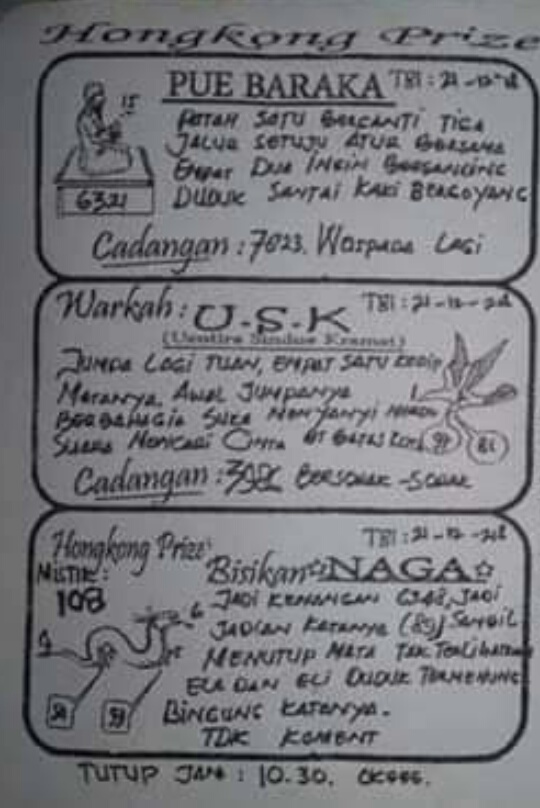 Hongkong Prize
PUE BARAKA TBI : 21 -12-
15
PATAH SATU BERGANTI TIGA
JALUR SETUJU ATUR BERSAMA
EMPAT DUA INGIN BERSANDING
6321
DUDUK SANTAI KAKI BERGOYANG
Cadangan : 7023. WASPADA LAGI
Warkah : U-S-K TBI : 21-12-
JUMPA LAGI TUAN, EMPAT SATU KEDIP
MATANYA. AWAL JUMPANYA
BERBAHAGIA SUKA MENYANYI
SUARA MENCARI CINTA DI BATAS
Cadangan : BERSORAK -SORAK
Hongkong Prize TBI : 21-12-
MISTIK : Bisikan NAGA
108
JADI KENANGAN 6348, JADI
6
JADIAN KATANYA (85) SAMBIL
MENUTUP MATA TAK TERLIHAT
ELA DAN ELI DUDUK TERMENUNG
BINGUNG KATANYA.
TDK KOMENT
TUTUP JAM : 10.30.